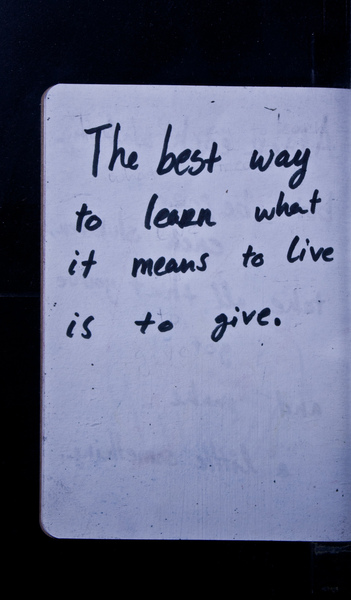 The best way
to learn what
it means to live
is to give.